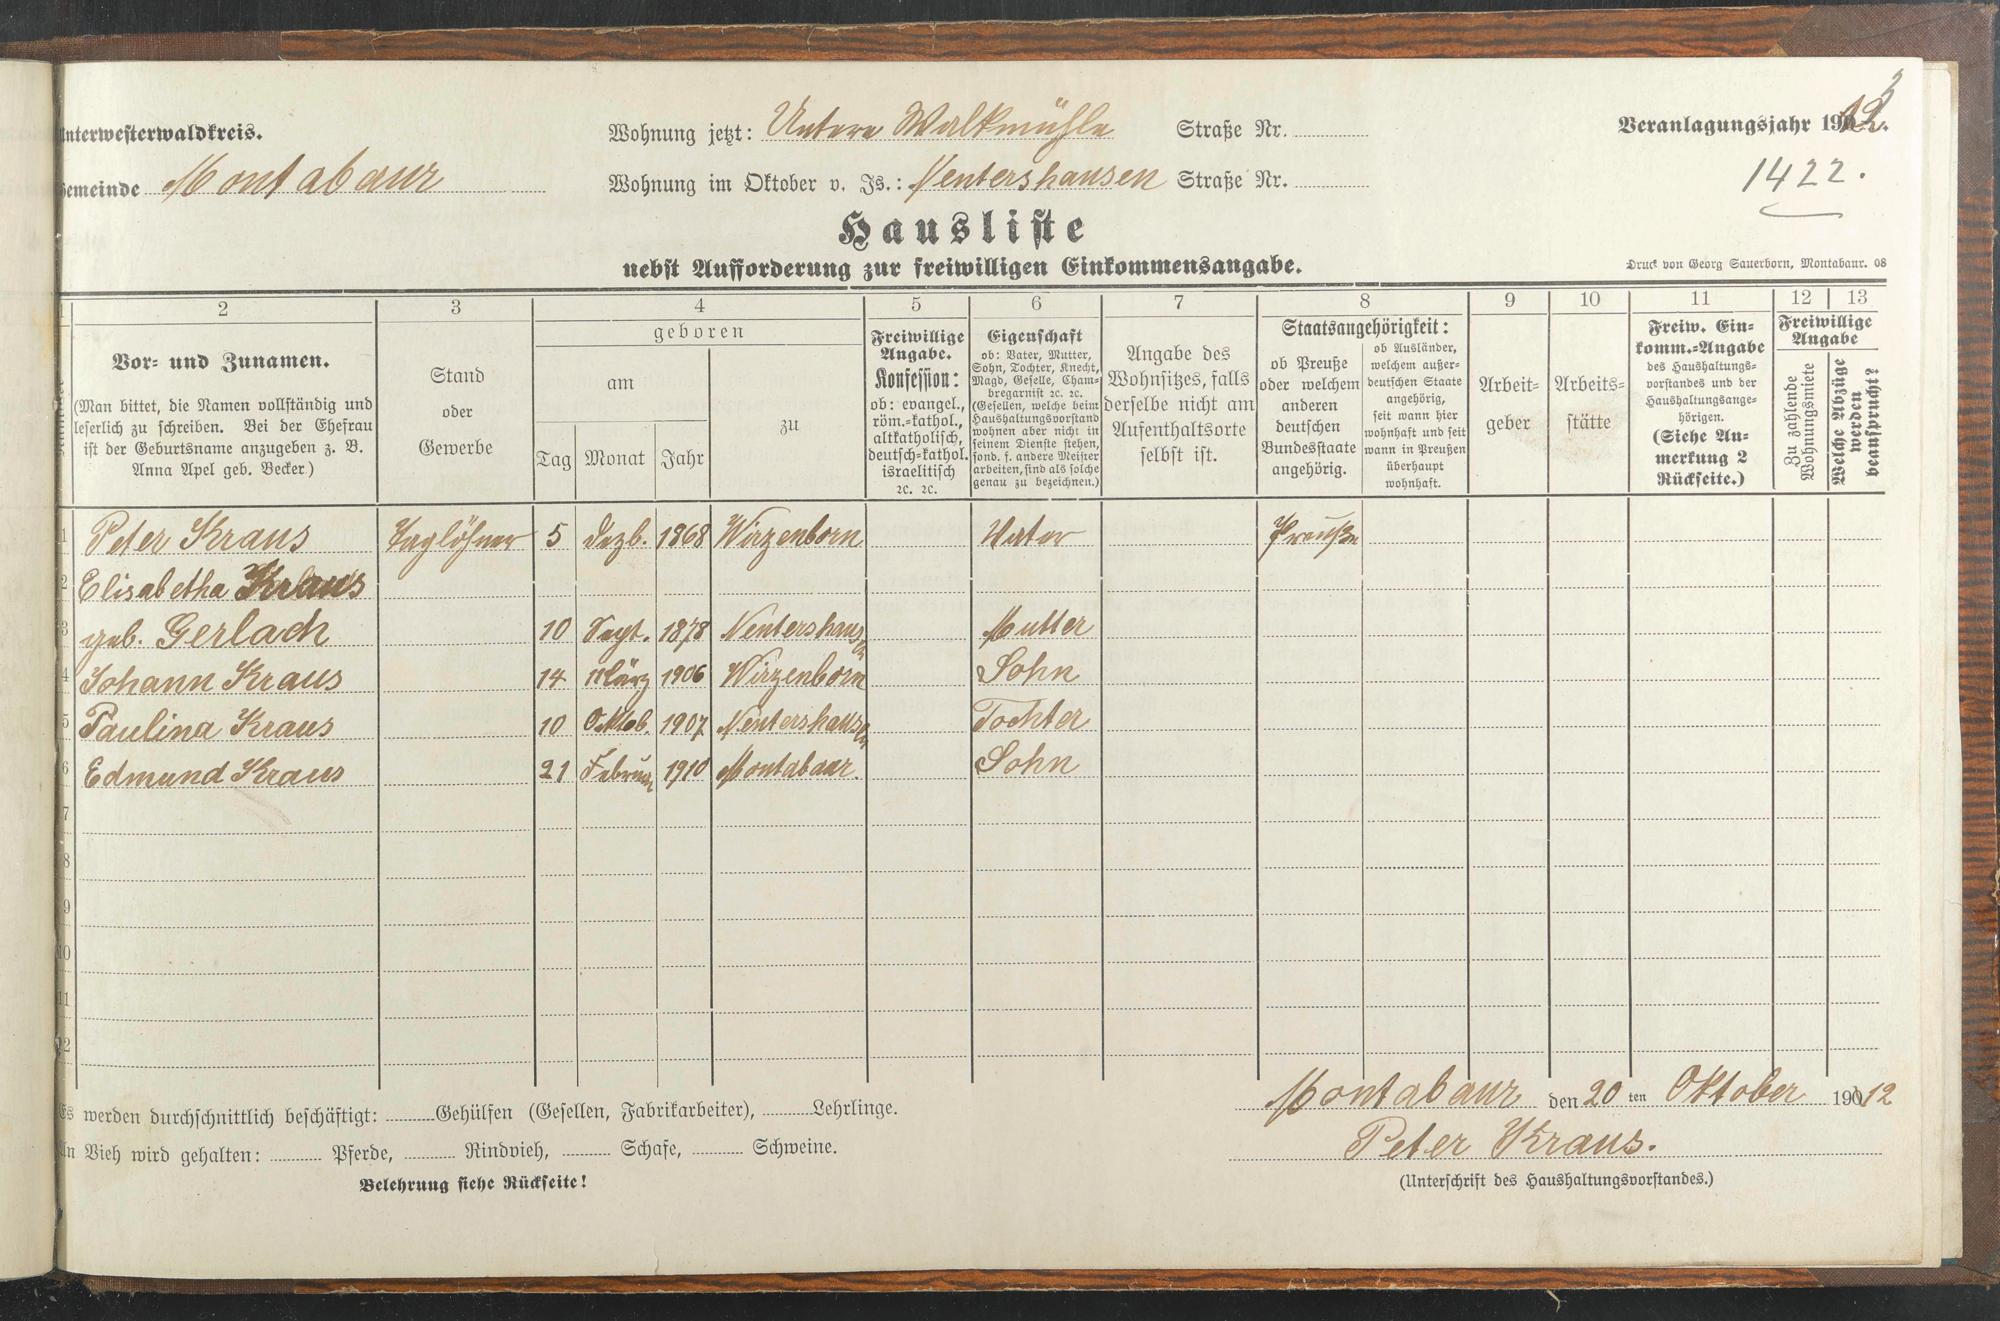 Unterwesterwaldkreis.
Gemeinde Montabaur
Wohnung jetzt: Untere Walkmühle Straße Nr.
Wohnung im Oktober v. Js.: Nentershausen Straße Nr.
Veranlagungsjahr 19
1422.
Hausliste
nebst Aufforderung zur freiwilligen Einkommensangabe.
Druck von Georg Sauerborn, Montabaur. 08
1 2 3 4 5 6 7 8 9 10 11 12 13
Vor- und Zunamen.
(Man bittet, die Namen vollständig und
leserlich zu schreiben. Bei der Ehefrau
ist der Geburtsname anzugeben z. B.
Anna Apel geb. Becker)
Stand
oder
Gewerbe
geboren
am
Tag Monat Jahr
zu
Freiwillige
Angabe.
Konfession:
ob: evangel.,
röm.-kathol.,
altkatholisch,
deutsch-kathol.
israelitisch
ec. ec.
Eigenschaft
ob: Vater, Mutter,
Sohn, Tochter, Knecht,
Magd, Geselle, Cham-
bregarnist ec. ec.
(Gesellen, welche beim
Haushaltungsvorstand
wohnen aber nicht in
seinem Dienste stehen,
sond. f. andere Meister
arbeiten, sind als solche
genau zu bezeichnen.)
Angabe des
Wohnsitzes, falls
derselbe nicht am
Aufenthaltsorte
selbst ist.
Staatsangehörigkeit:
ob Preuße
oder welchem
anderen
deutschen
Bundesstaate
angehörig.
ob Ausländer,
welchem außer-
deutschen Staate
angehörig,
seit wann hier
wohnhaft und seit
wann in Preußen
überhaupt
wohnhaft.
Arbeit-
geber
Arbeits-
stätte
Freiw. Ein-
komm.-Angabe
des Haushaltungs-
vorstandes und der
Haushaltungsange-
hörigen.
(Siehe An-
merkung 2
Rückseite.)
Freiwillige
Angabe
Zu zahlende
Wohnungsmiete
Welche Abzüge
werden
beansprucht?
1 Peter Kraus Taglöhner 5 Dezb. 1868 Wirzenborn Vater Preuße
2 Elisabetha Kraus
3 geb. Gerlach 10 Sept. 1878 Nentershausen Mutter
4 Johann Kraus 14 März 1906 Wirzenborn Sohn
5 Paulina Kraus 10 Oktob. 1907 Nentershausen Tochter
6 Edmund Kraus 21 Februar 1910 Montabaur. Sohn
7
8
9
10
11
12
Es werden durchschnittlich beschäftigt: Gehülfen (Gesellen, Fabrikarbeiter), Lehrlinge.
An Vieh wird gehalten: Pferde, Rindvieh, Schafe, Schweine.
Belehrung siehe Rückseite!
Montabaur den 20 ten Oktober 19012
Peter Kraus.
(Unterschrift des Haushaltungsvorstandes.)